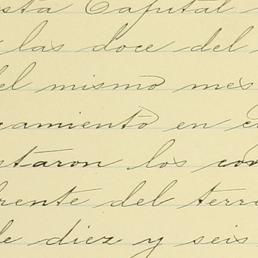 sta Capital
las doce del
el mismo mes
camiento en
staron los con
rente del terr
de diez y seis